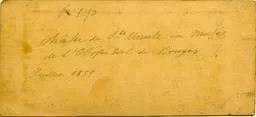 Châsse de Ste Ursule au musée
de l'Hôpital de Bruges
Juillet 18